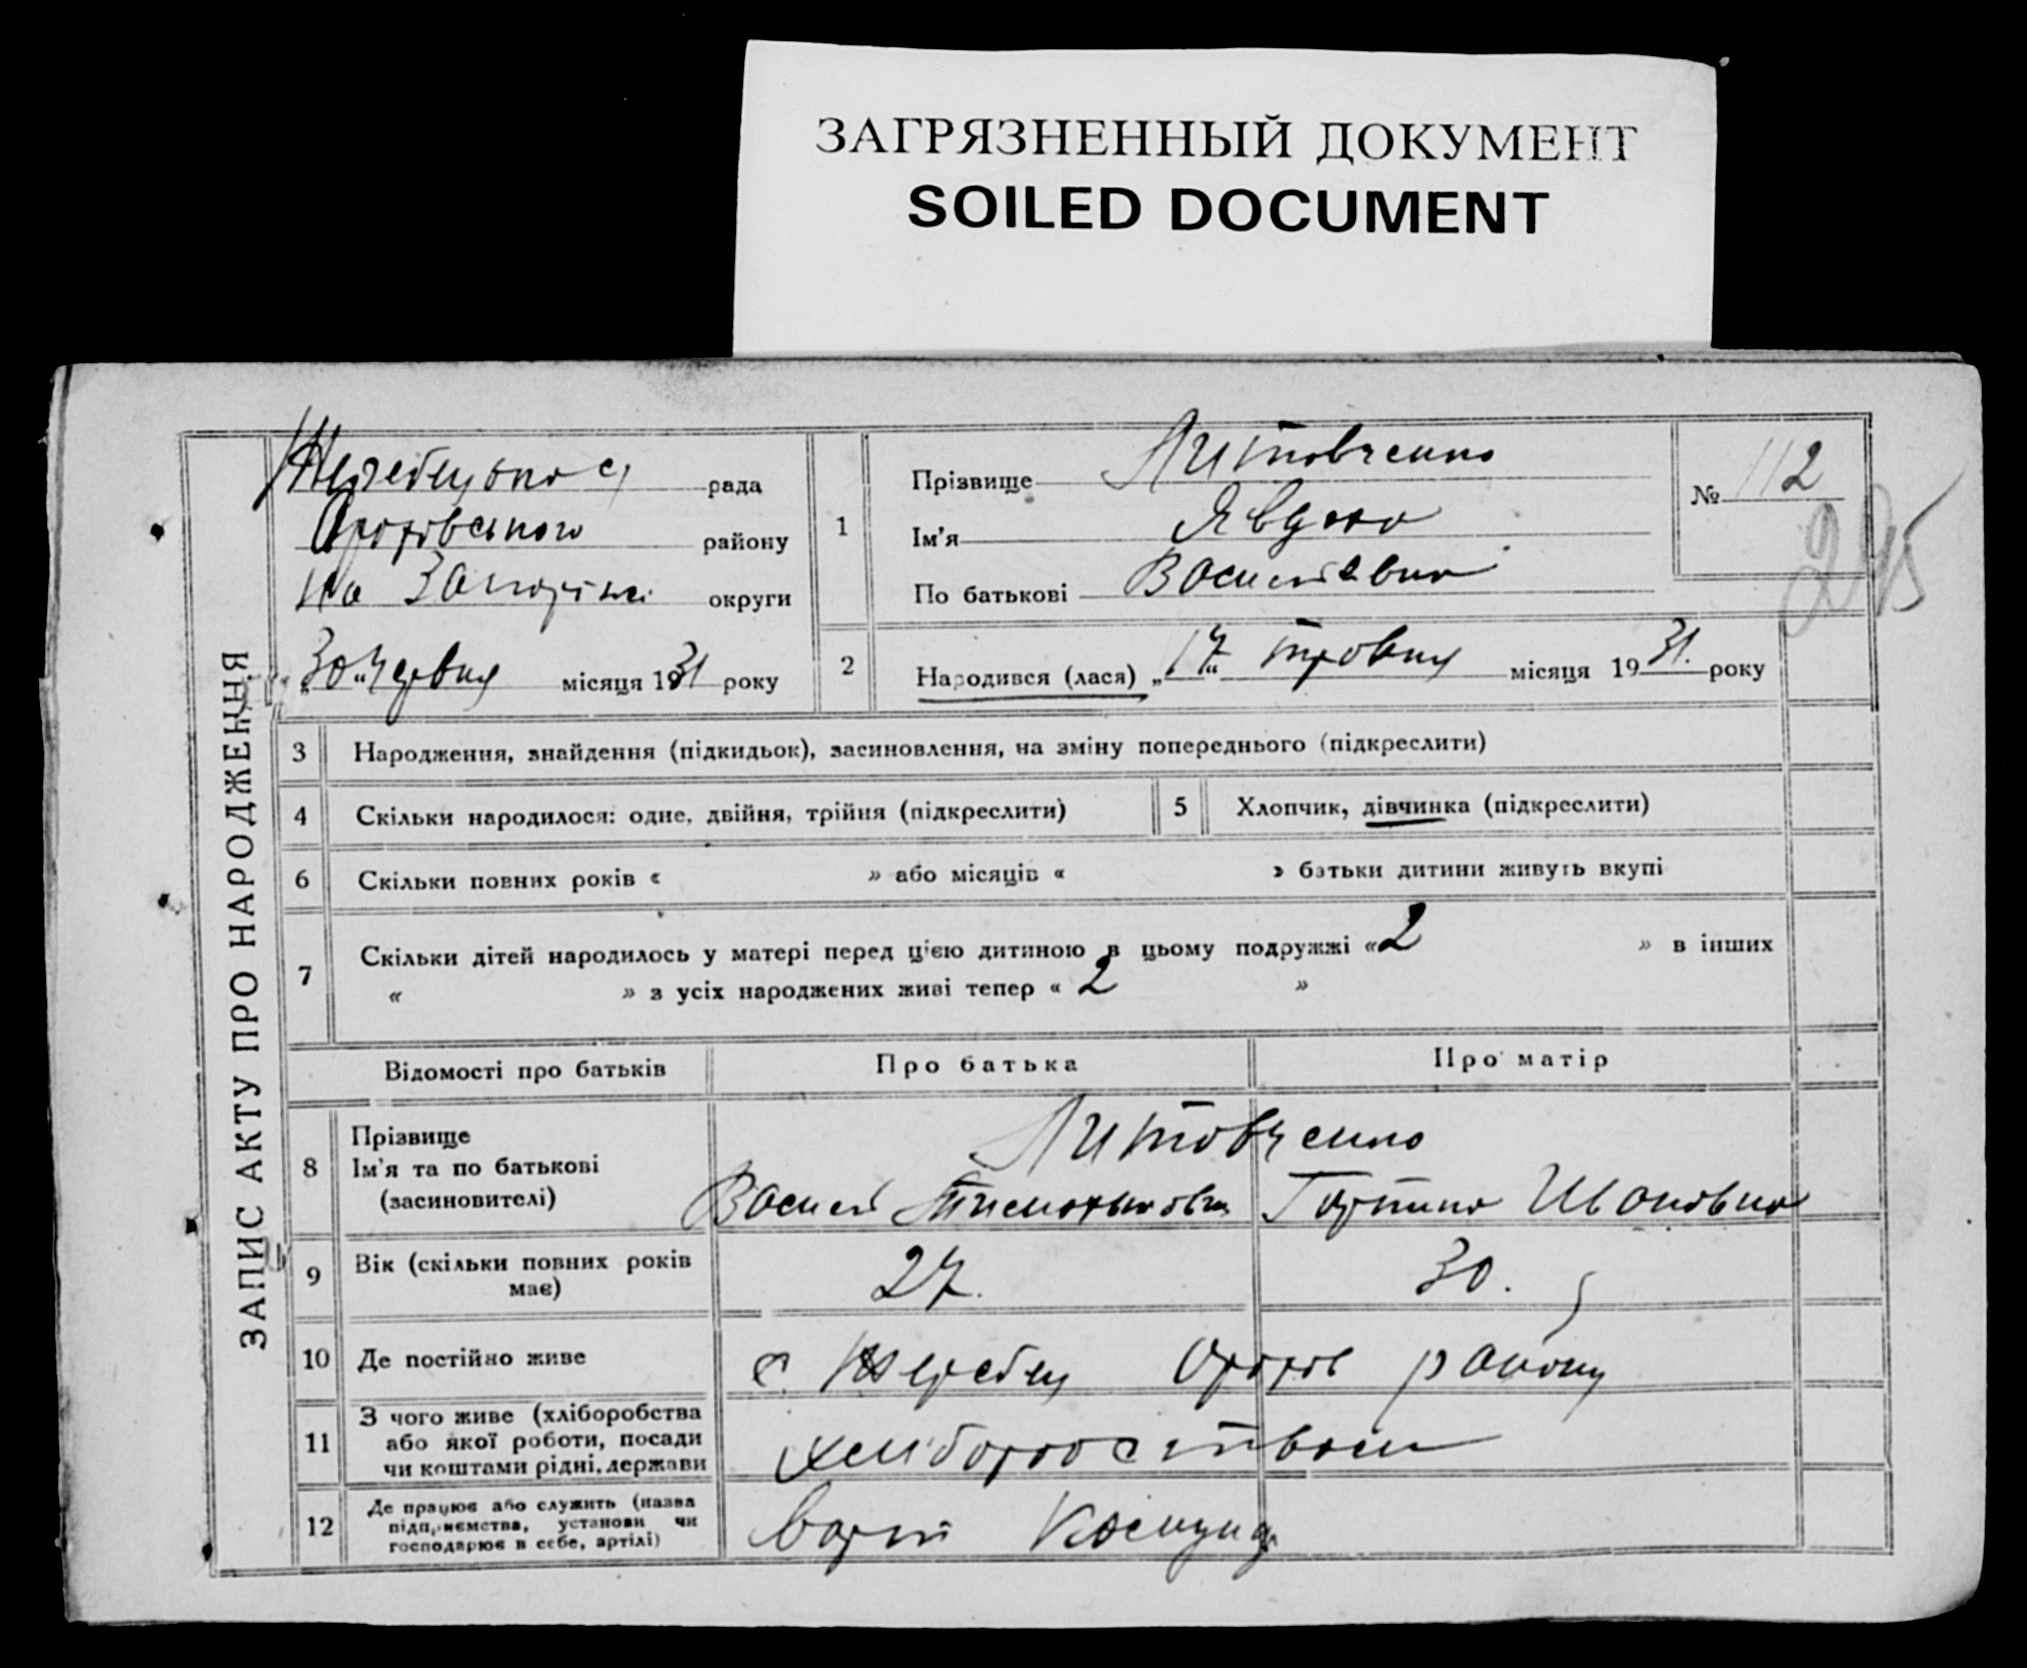 ЗАГРЯЗНЕННЫЙ ДОКУМЕНТ
SOILED DOCUMENT
ЗАПИС АКТУ ПРО НАРОДЖЕННЯ
рада
району
На Запоріжі округи
„30“ Червня місяця 1931 року
1
Прізвище Литовченко
Ім'я Явдоха
По батькові Василівна
№ 112
295
2
Народився (лася) „17“ травня місяця 1931. року
3 Народження, знайдення (підкидьок), засиновлення, на зміну попереднього (підкреслити)
4 Скільки народилося: одне, двійня, трійня (підкреслити) 5 Хлопчик, дівчинка (підкреслити)
6 Скільки повних років « » або місяців « » батьки дитини живуть вкупі
7 Скільки дітей народилось у матері перед цією дитиною в цьому подружжі «2 » в інших
« » з усіх народжених живі тепер « 2 »
Відомості про батьків Про батька Про матір
8 Прізвище
Ім'я та по батькові
(засиновителі)
Литовченко
Василь Тимофійович Горпина Ивановна
9 Вік (скільки повних років має) 27. 30.
10 Де постійно живе с. Жеребец Оріхів району
11 З чого живе (хліборобства
або якої роботи, посади
чи коштами рідні, держави
хліборобством
12 Де працює або служить (назва
підприємства, установи чи
господарює в себе, артілі)